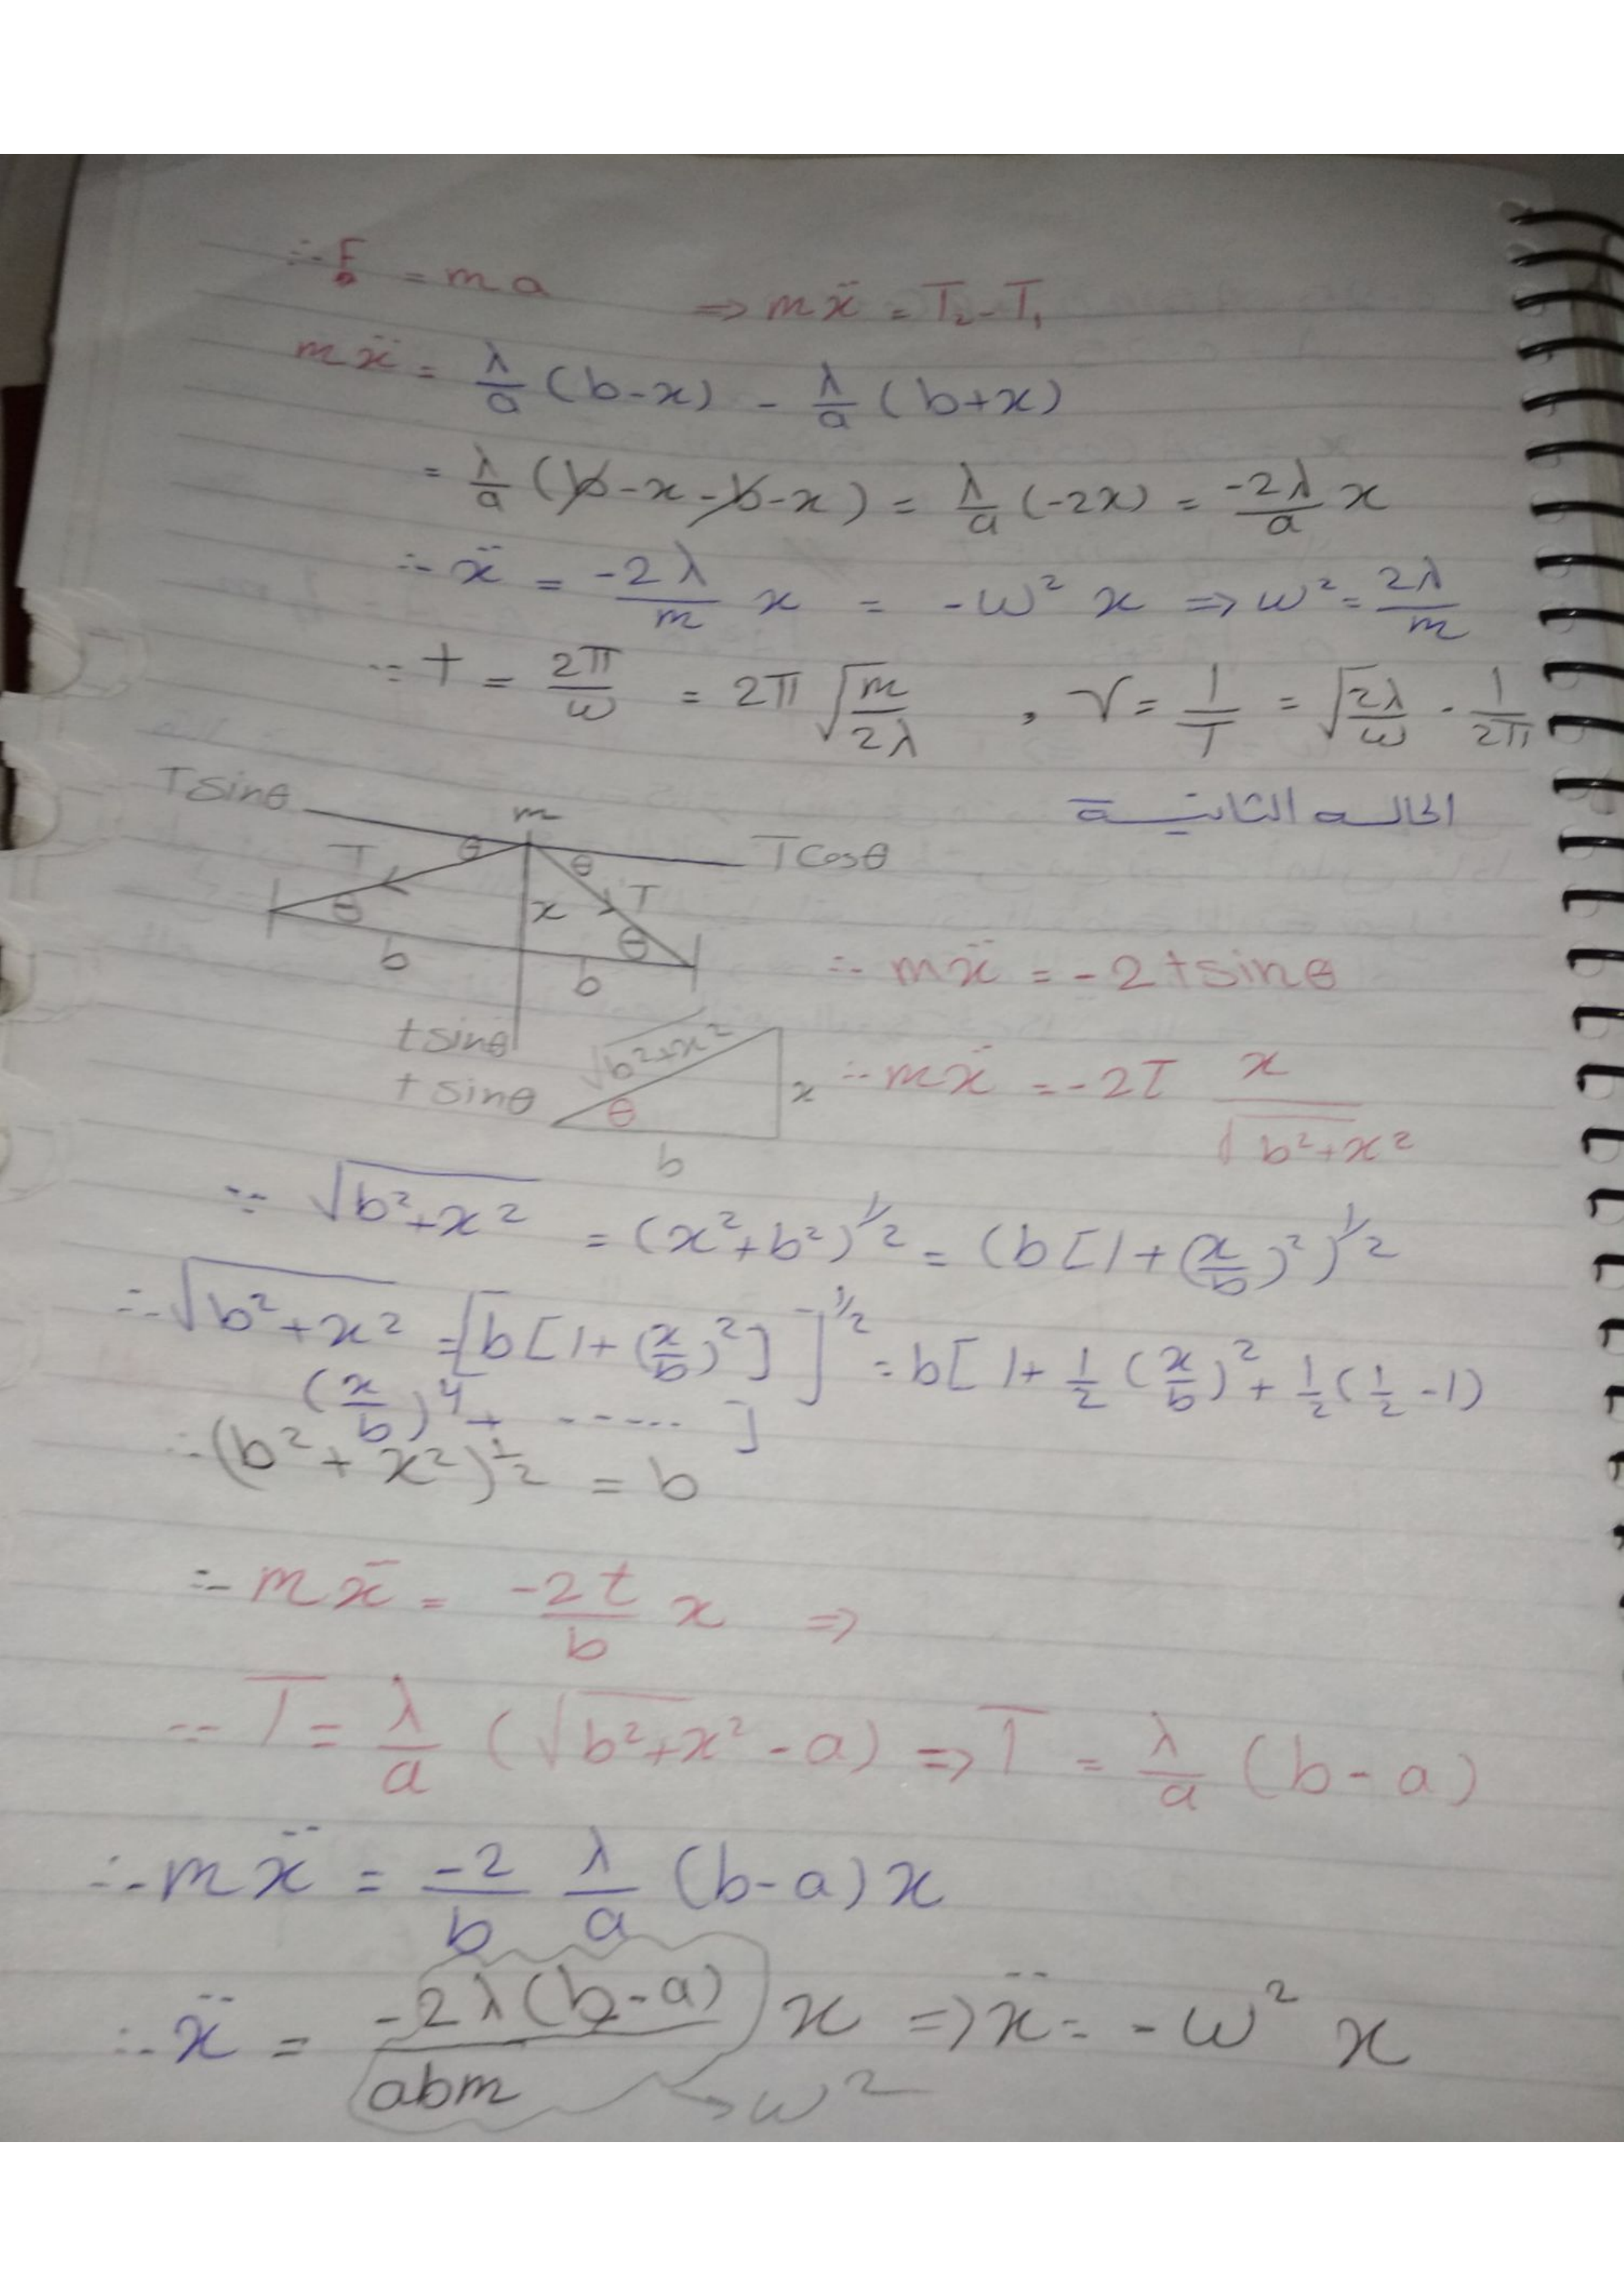 ∴ F = ma ⇒ mẍ = T₂ - T₁
mẍ = λ/a (b-x) - λ/a (b+x)
= λ/a (b-x-b-x) = λ/a (-2x) = -2λ/a x
∴ ẍ = -2λ/m x = -ω² x ⇒ ω² = 2λ/m
∵ T = 2π/ω = 2π √(m/2λ) , γ = 1/T = √(2λ/ω) · 1/2π
الحالـه الثانيـة
Tsinθ
m
T
θ
θ
Tcosθ
θ
x
T
θ
b
b
∴ mẍ = -2tsinθ
tsinθ
tsinθ
√(b²+x²)
θ
x
b
∴ mẍ = -2T x/√(b²+x²)
∵ √(b²+x²) = (x²+b²)^½ = (b[1+(x/b)²)^½
∴ √(b²+x²) = [b[1+(x/b)²]]^½ = b[1+½(x/b)²+½(½-1)
(x/b)⁴+ ------ ]
∴ (b²+x²)^½ = b
∴ mẍ = -2t/b x ⇒
∵ T = λ/a (√(b²+x²) - a) ⇒ T = λ/a (b-a)
∴ mẍ = -2/b λ/a (b-a)x
∴ ẍ = -2λ(b-a)/abm x ⇒ ẍ = -ω² x
→ ω²